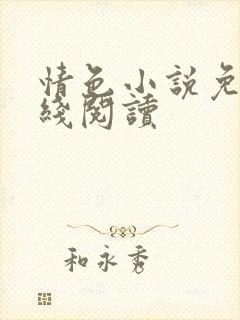 情色小說免
綫閱讀
和永秀